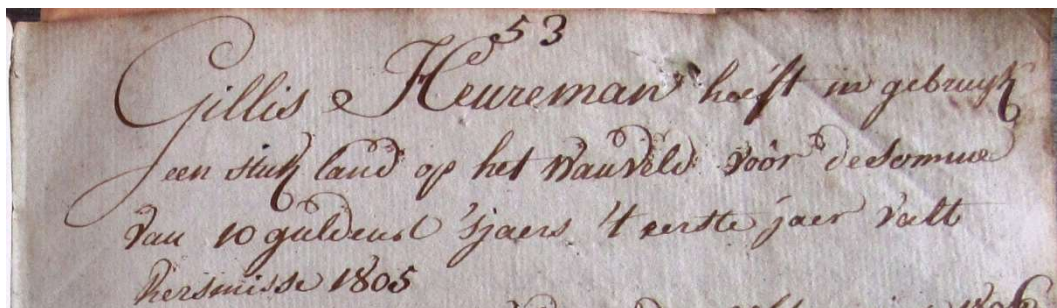 53
Gillis Heureman heeft in gebruyk
een stuk land op het Wauveld voor de Somme
van 10 guldens 'sjaers 't eerste jaer valt
kersmisse 1805